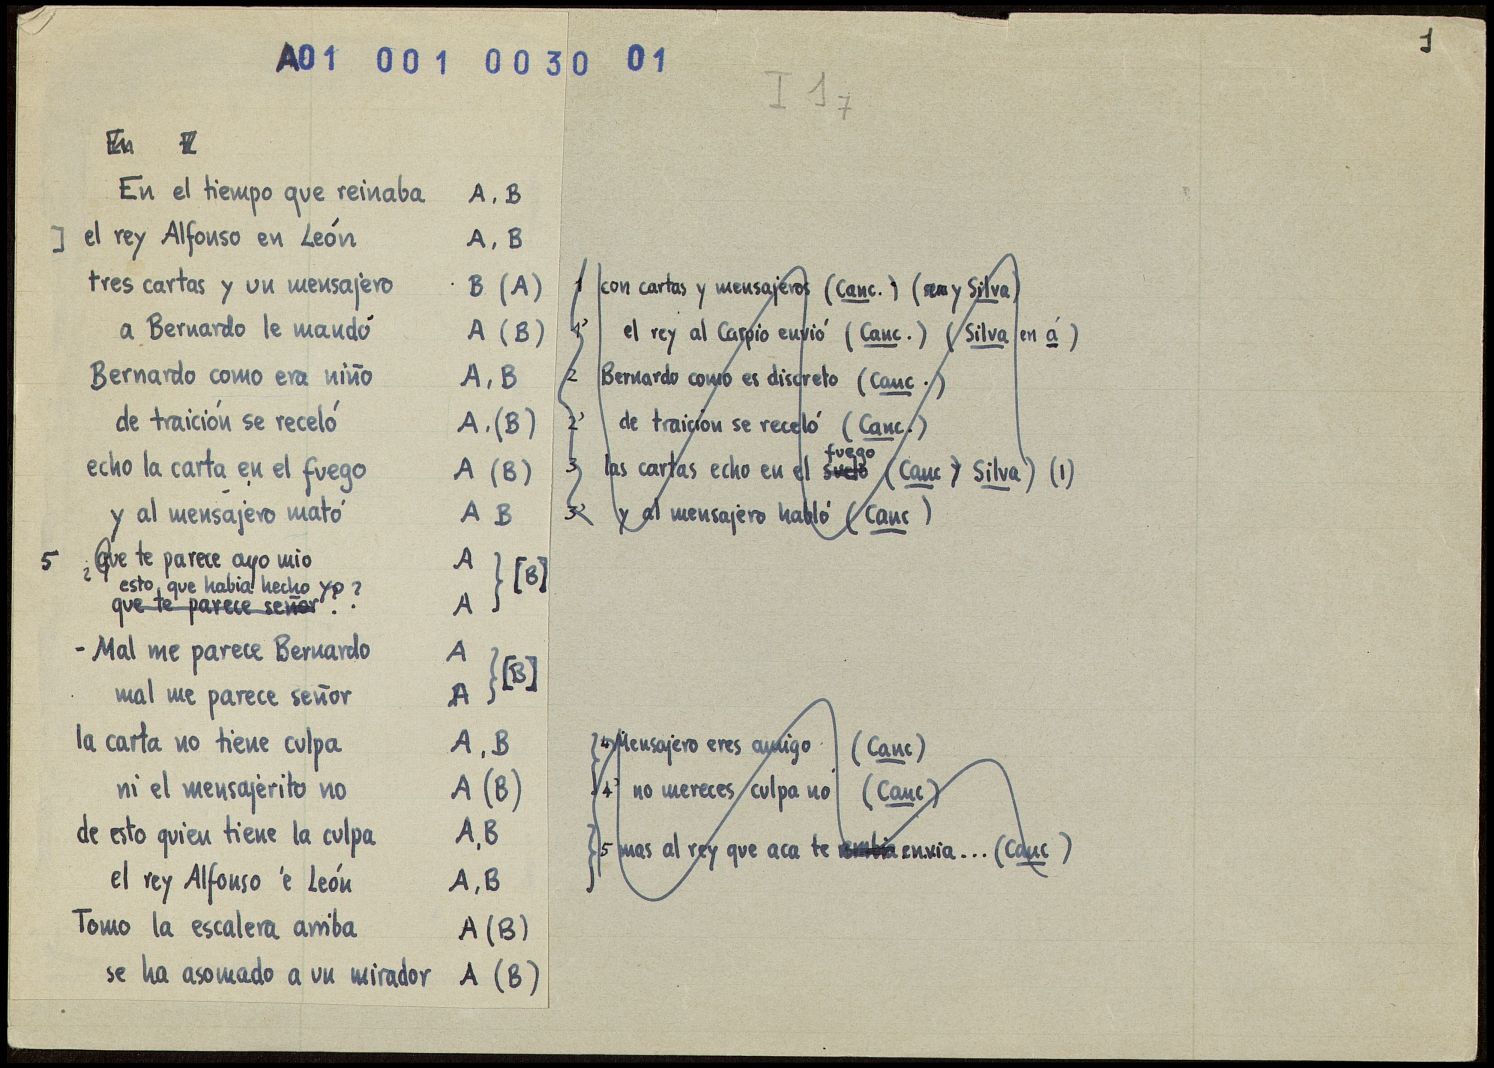 A01 001 0030 01
1
I 1 7
En E
En el tiempo que reinaba A, B
] el rey Alfonso en León A, B
tres cartas y un mensajero B (A) 1 con cartas y mensajeros (Canc.) (y Silva)
a Bernardo le mandó A (B) 1' el rey al Carpio envió (Canc.) (Silva en á)
Bernardo como era niño A, B 2 Bernardo como es discreto (Canc.)
de traición se receló A, (B) 2' de traición se receló (Canc.)
fuego
echo la carta en el fuego A (B) 3 las cartas echo en el suelo (Canc y Silva) (1)
y al mensajero mató A B 3' y al mensajero habló (Canc)
5 ¿Que te parece ayo mio A [B]
esto, que habia hecho yo?
que te parece señor? A
- Mal me parece Bernardo A [B]
mal me parece señor A
la carta no tiene culpa A, B 4 Mensajero eres amigo (Canc)
ni el mensajerito no A (B) 4' no mereces culpa no (Canc)
de esto quien tiene la culpa A, B
5 mas al rey que aca te envia... (Canc)
el rey Alfonso 'e León A, B
Tomo la escalera arriba A (B)
se ha asomado a un mirador A (B)